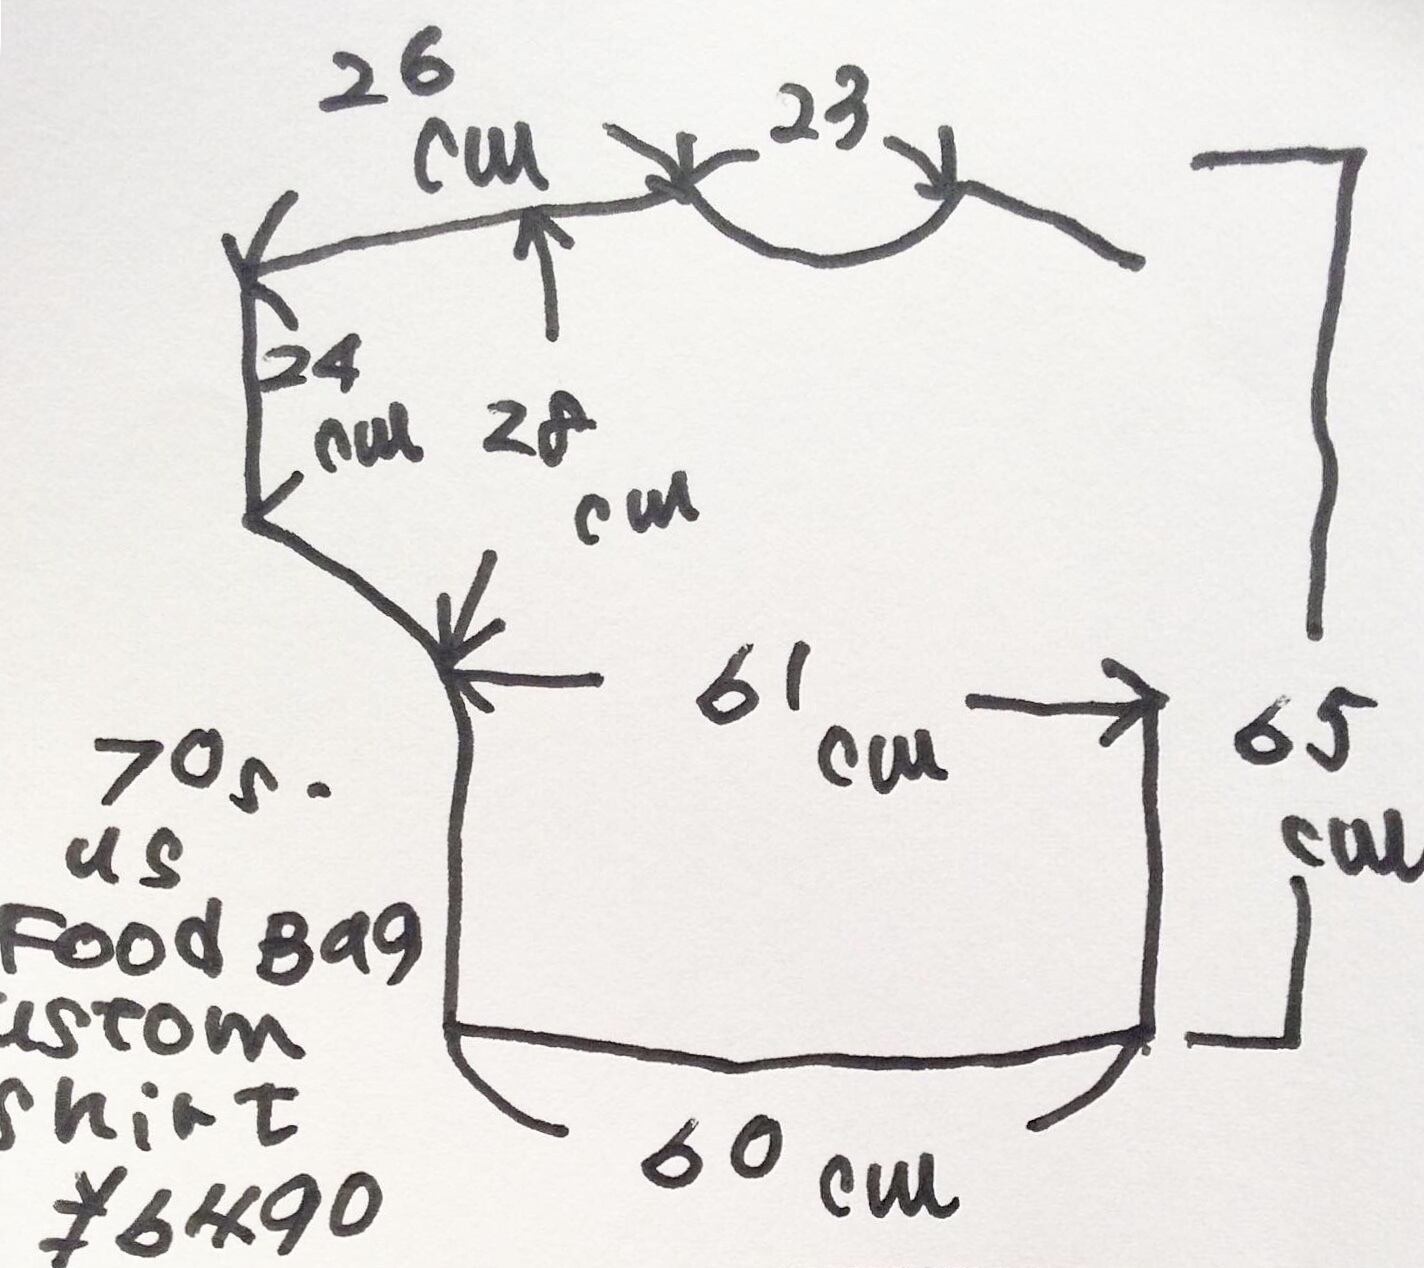 26
cm
23
24
cm
28
cm
61
cm
65
cm
70s.
us
Food Bag
custom
shirt
¥6490
60 cm